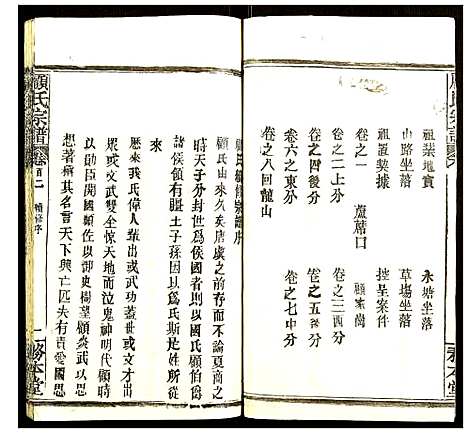 祖塋地實
永塘坐落
山路坐落
草塲坐落
祖置契據
控呈案件
卷之一
蘆蓆口
顧家崗
卷之二上分
卷之三四分
卷之二中分
卷之五西分
卷六之東分
卷之七中分
卷之八回龍山
務本堂
顧氏宗譜
卷首二
續修序
務本堂
顧氏續修宗譜序
顧氏由來久矣唐虞之前存而不論夏商之
時天子分封爲侯國者則以國氏顧伯爵
諸侯領有疆土子孫因以爲氏斯是姓所從
來
歷來我氏偉人輩出或以武功蓋世或以文
衆或文武雙全惊天地而泣鬼神明代顧時
以勋臣開國顧佐以御史樹望顧炎武以思
想著稱其名言天下興亡匹夫有责愛國思